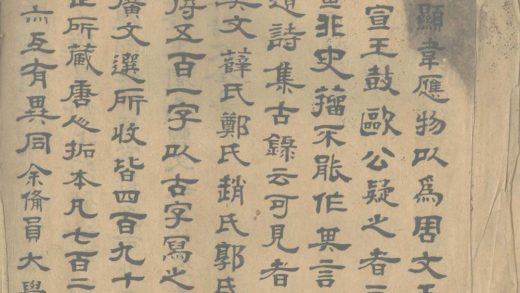 顯韋應物以爲周文王
宣王鼓歐公疑之者三
非史籀不能作其言
道詩集古錄云可見者
其文薛氏鄭氏趙氏郭氏
得五百一字以古字寫之
廣文選所收皆四百九十
所藏唐人拓本凡七百二
亦互有異同余備員大學